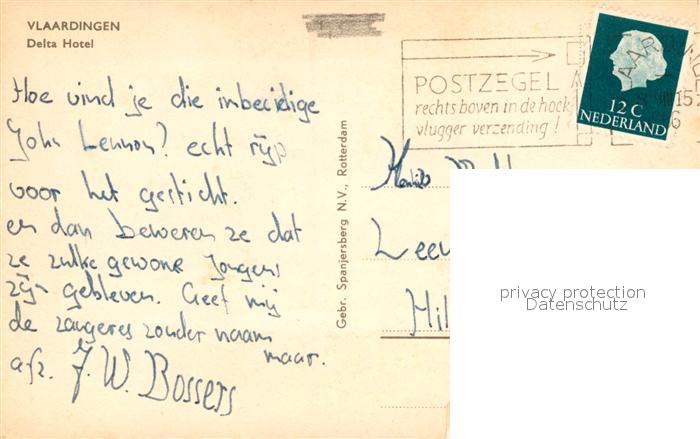 VLAARDINGEN
Delta Hotel
Hoe vind je die imbeciele
John Lennon? echt rijp
voor het gesticht.
en dan beweren ze dat
ze zulke gewone jongens
zijn gebleven. Geef mij
de zangeres zonder naam
maar.
afz. J. W. Bossers
Gebr. Spanjersberg N.V., Rotterdam
POSTZEGEL
rechts boven in de hoek
vlugger verzending!
15
6
12 C
NEDERLAND
Leeu
Hil
privacy protection
Datenschutz